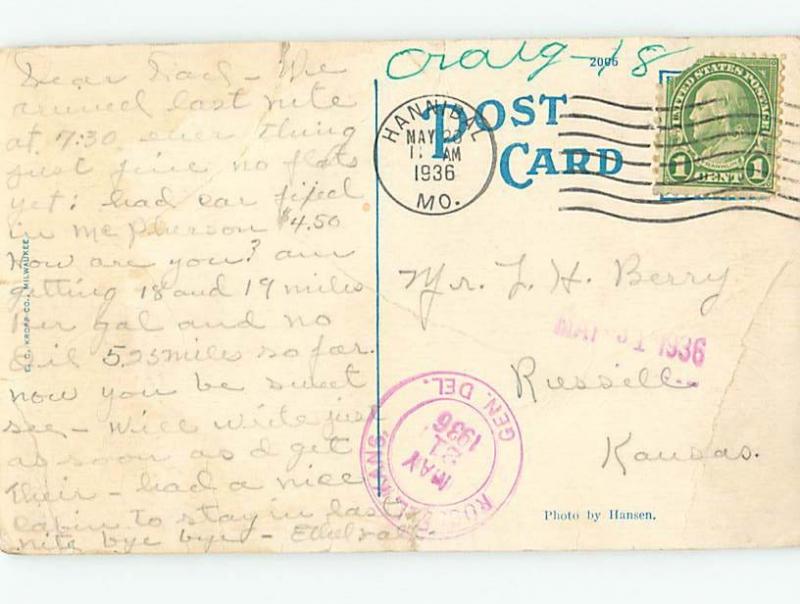 Craig-18
2006
Dear Dad - We
arrived last nite
at 7:30 ever thing
just fine no flats
yet; had car fixed
in McPherson $4.50
How are you? am
getting 18 and 19 miles
Per gal and no
Oil 525 miles so far.
now you be sweet
see - Will write just
as soon as I get
Their - had a nice
cabin to stay in last
nite bye bye -
E. C. KROPP CO., MILWAUKEE
POST
CARD
HANNIBAL
MAY 20
11 AM
1936
MO.
UNITED STATES POSTAGE
1 CENT 1
Mr. L. H. Berry
1936
Russell
Kansas.
GEN. DEL.
MAY
21
1936
RUSSELL, KANS.
Photo by Hansen.